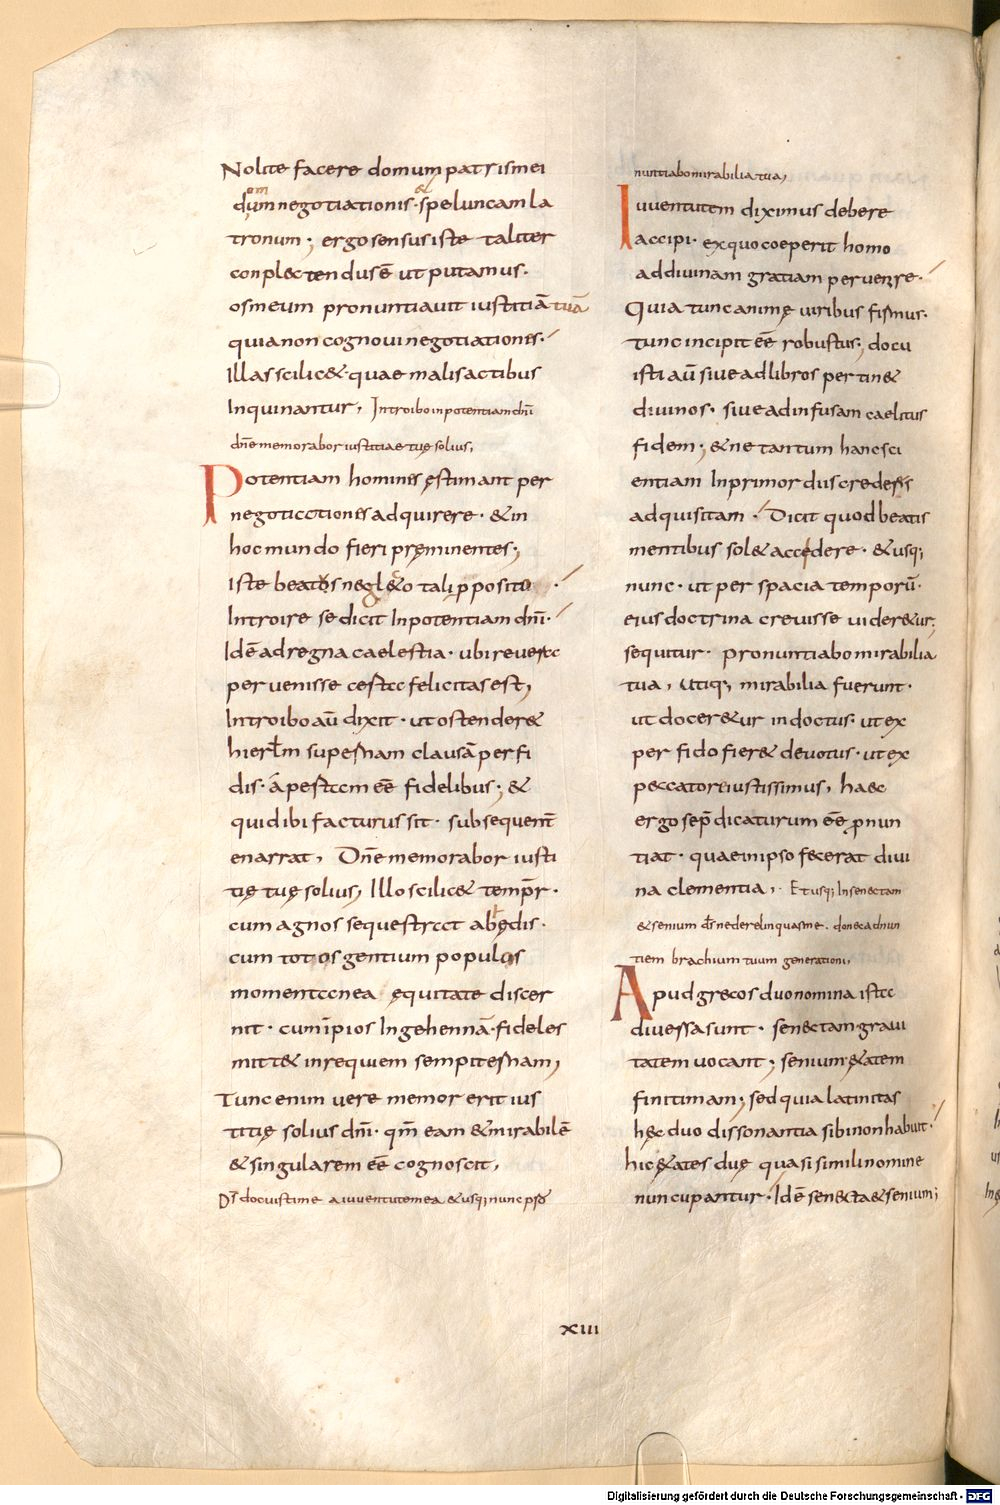 Nolite facere domum patris mei
domum negotiationis · & speluncam la
tronum ; ergo sensus iste taliter
conplectendus ē ut putamus ·
os meum pronuntiavit iustitiā tuā
quia non cognovi negotiationes ·
Illas scilic& · quae malis actibus
Inquinantur , Introibo in potentiam dn̄i
dn̄e memorabor iustitiae tuę solius ,
Potentiam homines ęstimant per
negotiationes adquirere · & in
hoc mundo fieri pręminentes ;
Iste beatus neglecto tali pposito ·
Introire se dicit In potentiam dn̄i ·
Id ē ad regna caelestia · ubi revera
pervenisse certa felicitas est ,
Introibo aū dixit · ut ostender&
hierl̄m supernam clausā perfi
dis · á pestem eē fidelibus ; &
quid ibi facturus sit · subsequent̄
enarrat , Dn̄e memorabor iusti
tię tuę solius , Illo scilic& tempr̄ ·
cum agnos sequestrat ab hędis ·
cum totos gentium populos
momentanea ęquitate discer
nit · cum īpios In gehennā · fideles
mitt& in requiem sempiternam ,
Tunc enim vere memor erit ius
titię solius dn̄i · qm̄ eam & mirabilē
& singularem eē cognoscit ,
Ds̄ docuisti me a iuventute mea & usq; nunc
nuntiabo mirabilia tua ,
Iuventutem diximus debere
accipi · ex quo coeperit homo
ad divinam gratiam pervenire ·
Quia tunc animę viribus fismus ·
tunc incipit eē robustus ; docu
isti aū sive ad libros pertin&
divinos · sive ad infusam caelitus
fidem ; & ne tantum hanc sci
entiam In primordiis crederes
adquisitam · Dicit quod beatis
mentibus sol& accedere · & usq;
nunc · ut per spacia temporū ·
eius doctrina crevisse vider&ur ;
sequitur · pronuntiabo mirabilia
tua , Utiq; mirabilia fuerunt ·
ut docer&ur indoctus · ut ex
perfido fier& devotus · ut ex
peccatore iustissimus , haec
ergo se p̄dicaturum eē pnun
tiat · quae in ipso fecerat divi
na clementia , · Et usq; In senectam
& senium ds̄ ne derelinquas me · donec adnun
tiem brachium tuum generationi ,
Apud grecos duo nomina ista
diversa sunt · senectam gravi
tatem vocant ; senium ętatem
finitimam ; sed quia latinitas
hęc duo dissonantia sibi non habuit ·
hic ętates duę quasi simili nomine
nuncupantur · Id ē senecta & senium ;
xiii
Digitalisierung gefördert durch die Deutsche Forschungsgemeinschaft - DFG